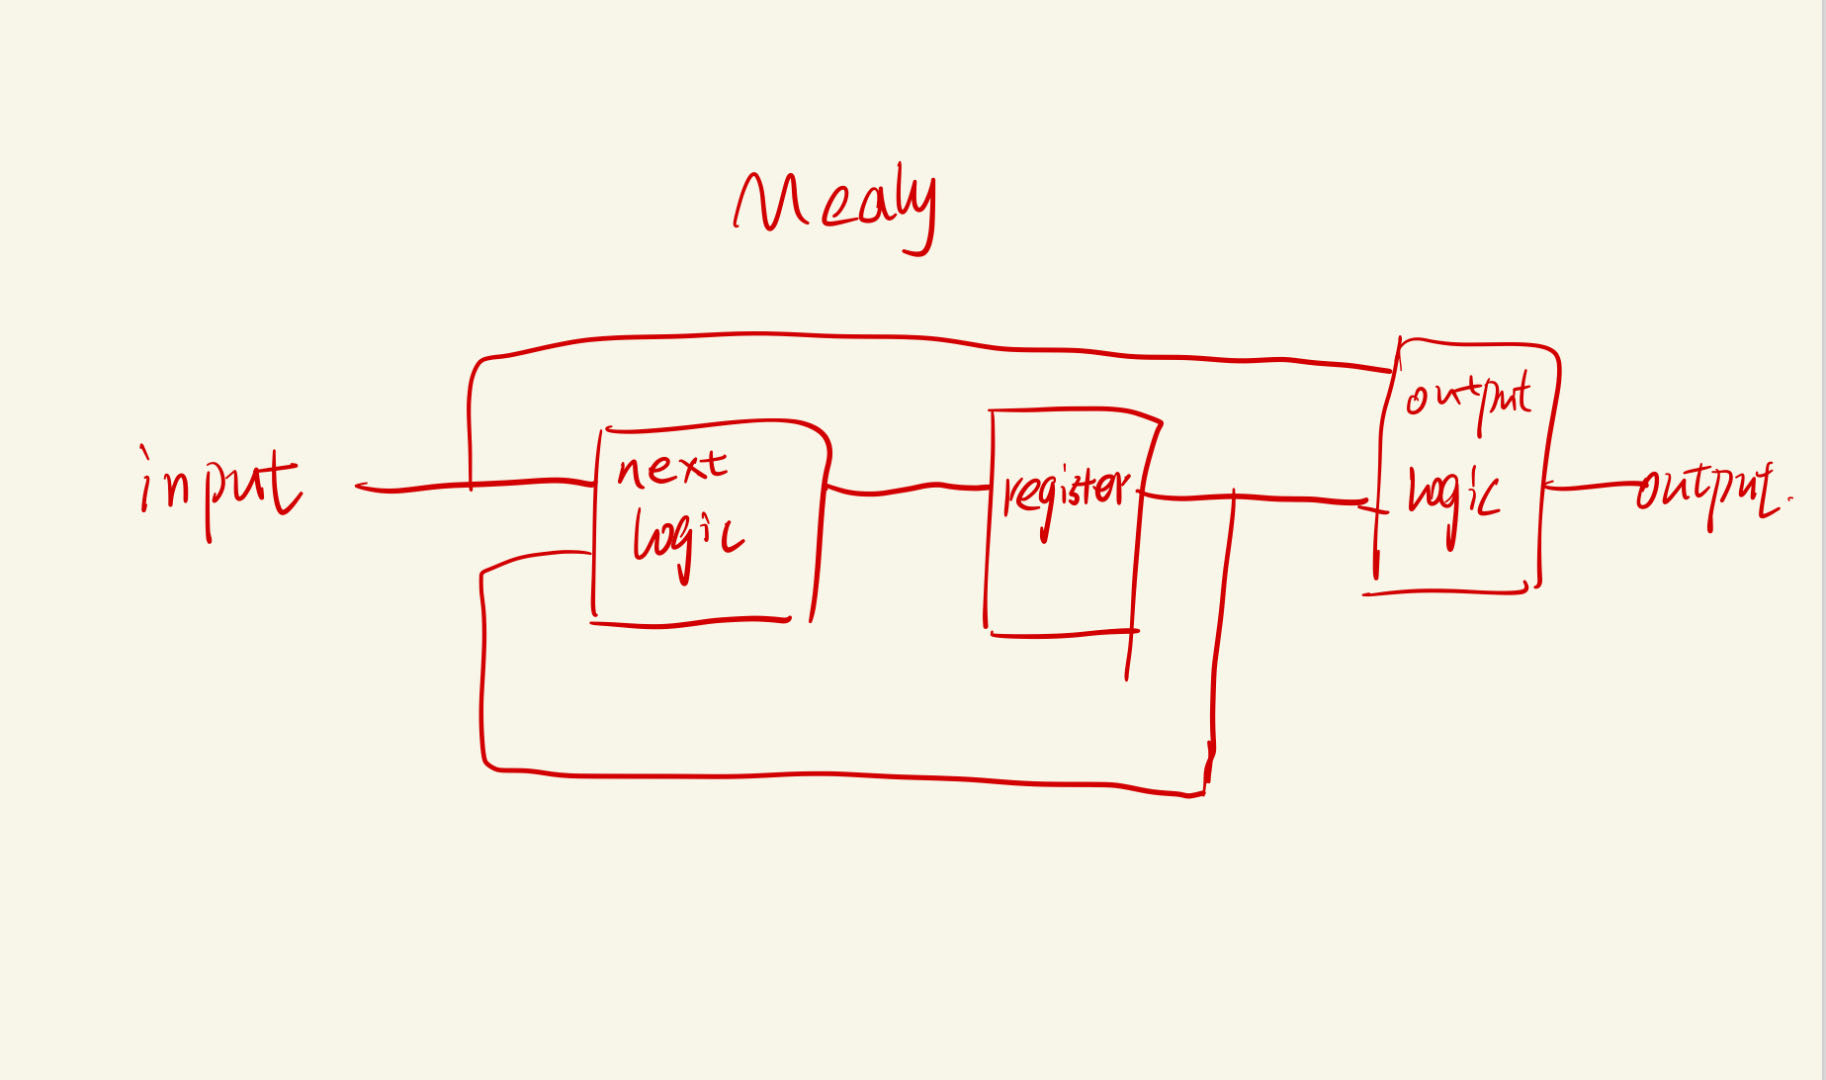 Mealy
input
next
logic
register
output
logic
output.